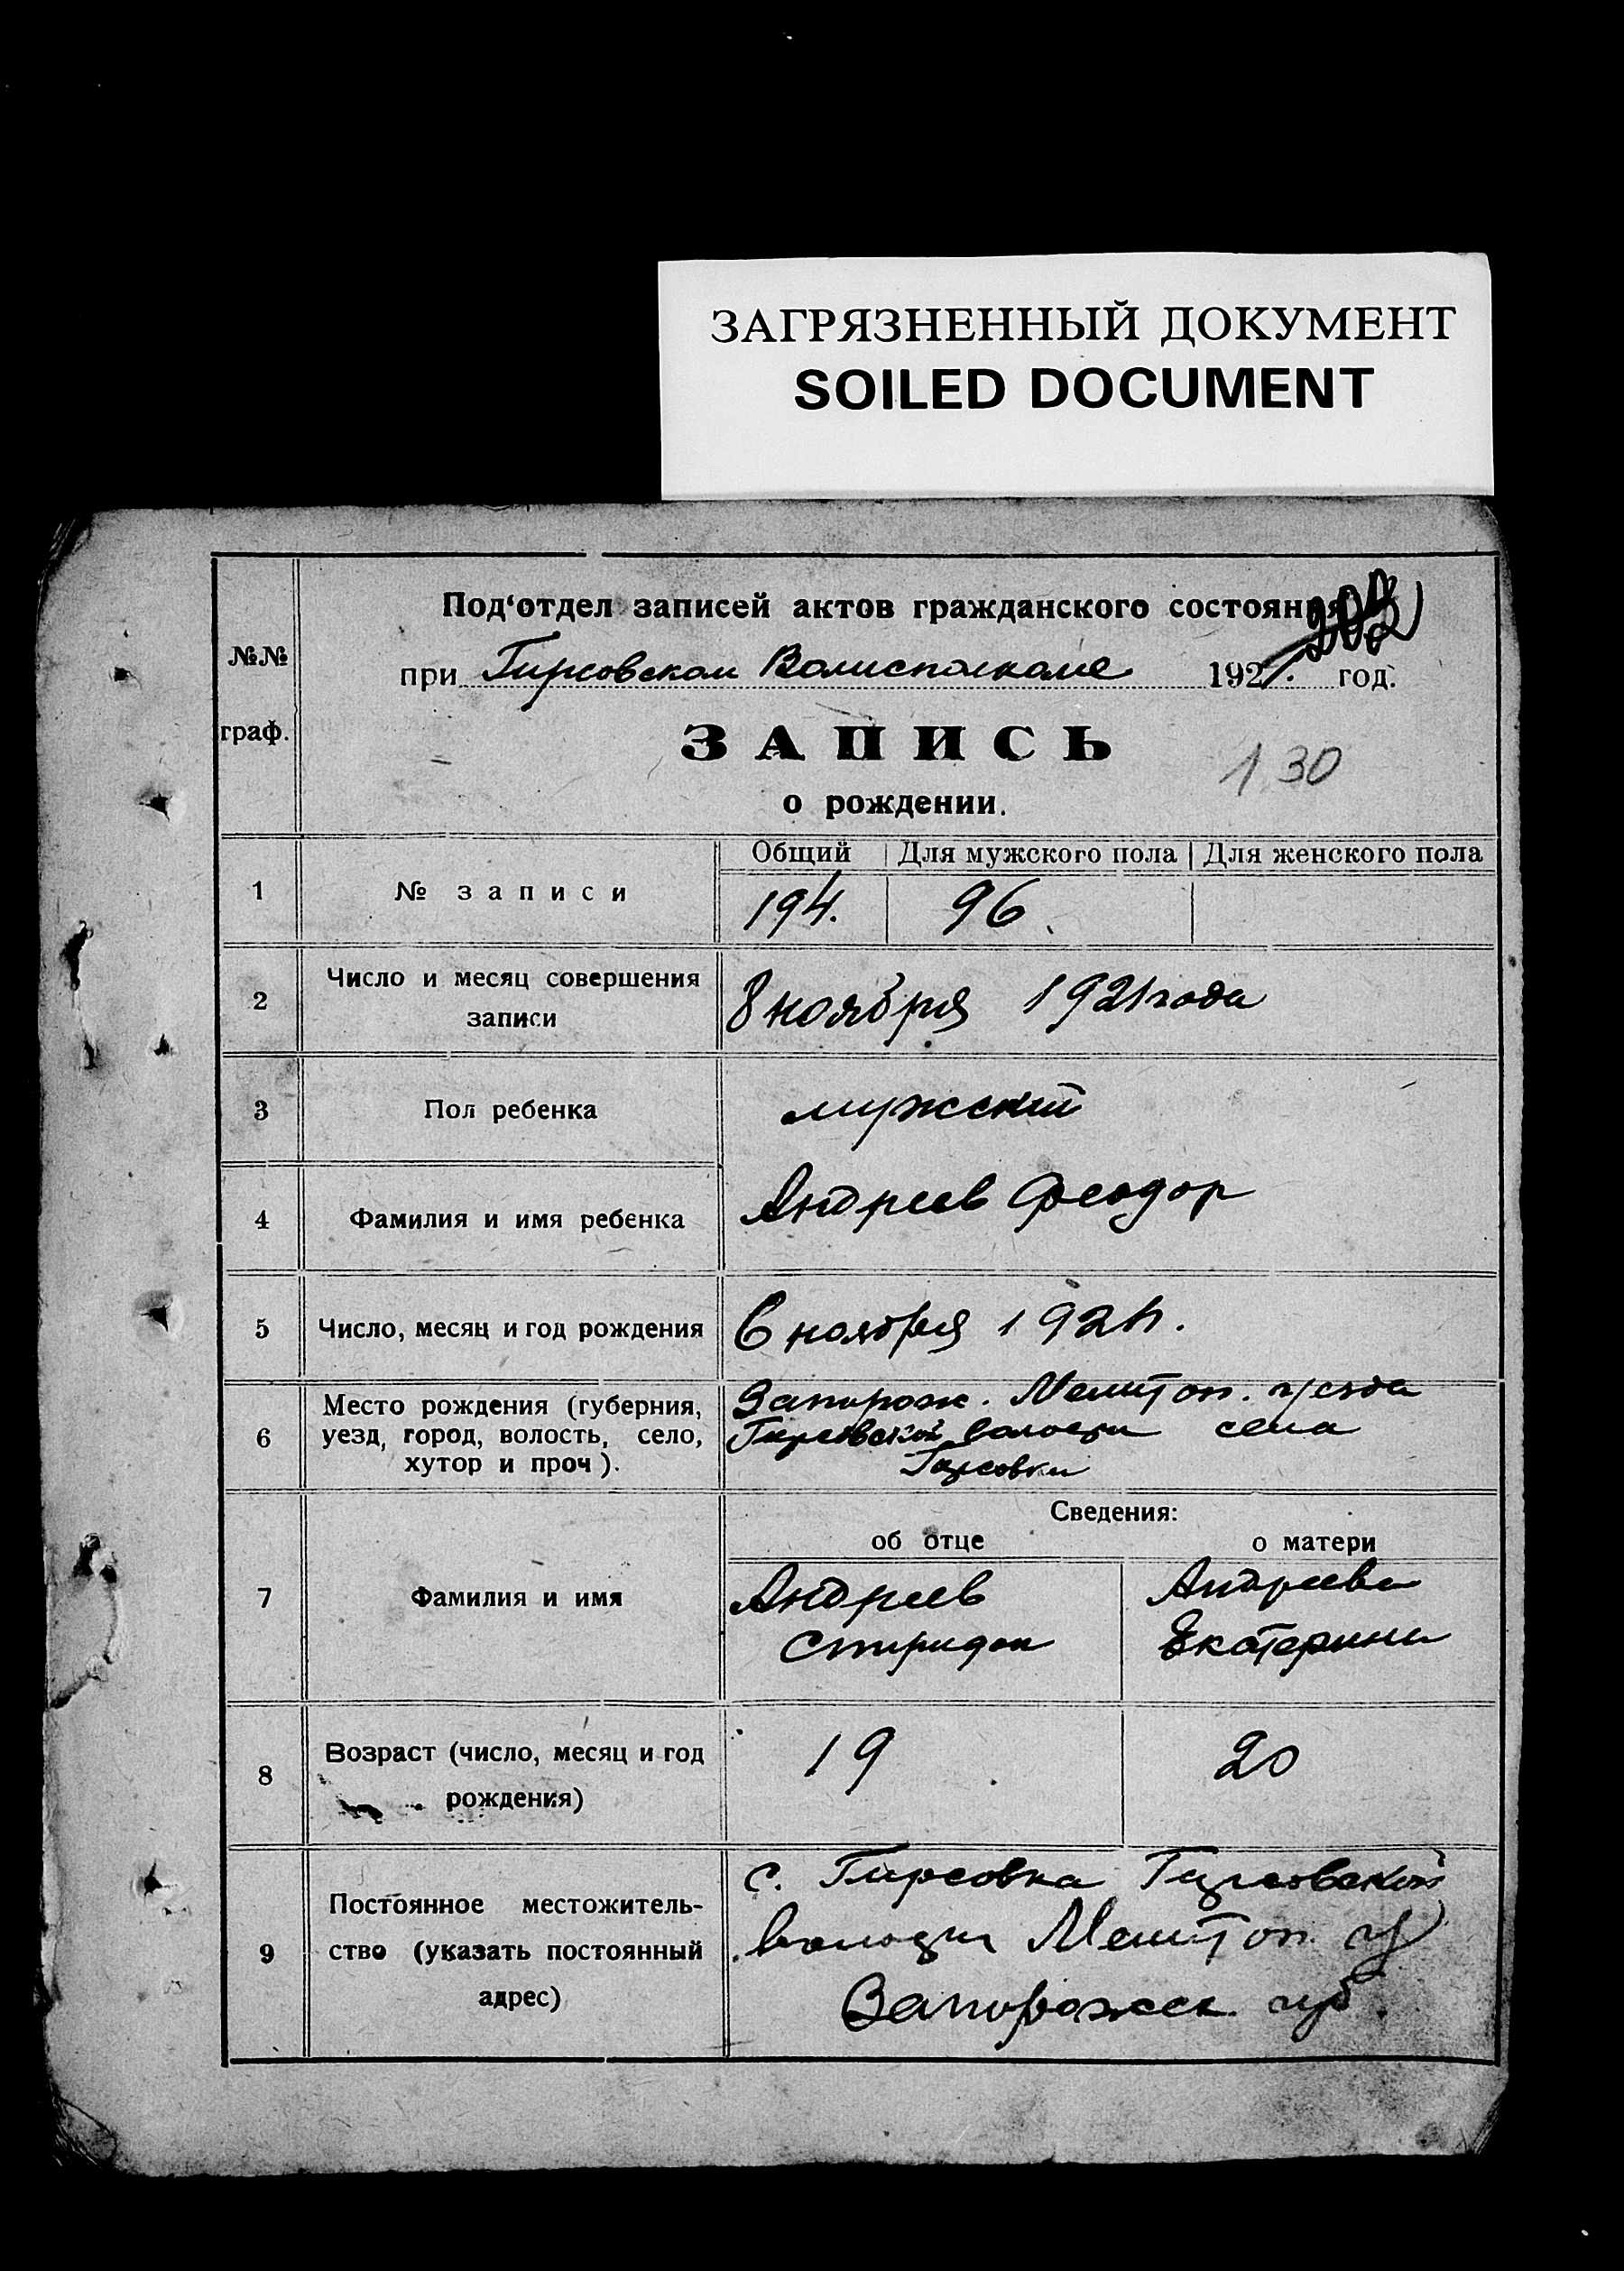 ЗАГРЯЗНЕННЫЙ ДОКУМЕНТ
SOILED DOCUMENT
Под‘отдел записей актов гражданского состояния
№№
граф.
при Гирсовском Волисполкоме 1921. год.
ЗАПИСЬ
1 30
о рождении.
Общий Для мужского пола Для женского пола
1 № записи 194. 96.
2 Число и месяц совершения
записи
8 ноября 1921 года
3 Пол ребенка мужский
4 Фамилия и имя ребенка Андреев Феодор
5 Число, месяц и год рождения 6 ноября 1921 г.
6 Место рождения (губерния,
уезд, город, волость, село,
хутор и проч).
Запорож. Мелитоп. уезда
Гирсовской волости села
Гирсовки
Сведения:
об отце о матери
7 Фамилия и имя
Андреев Андреева
Спиридон Екатерина
8 Возраст (число, месяц и год
рождения)
19 20
9 Постоянное местожитель-
ство (указать постоянный
адрес)
с. Гирсовка Гирсовской
волости Мелитоп. у
Запорожск. губ.